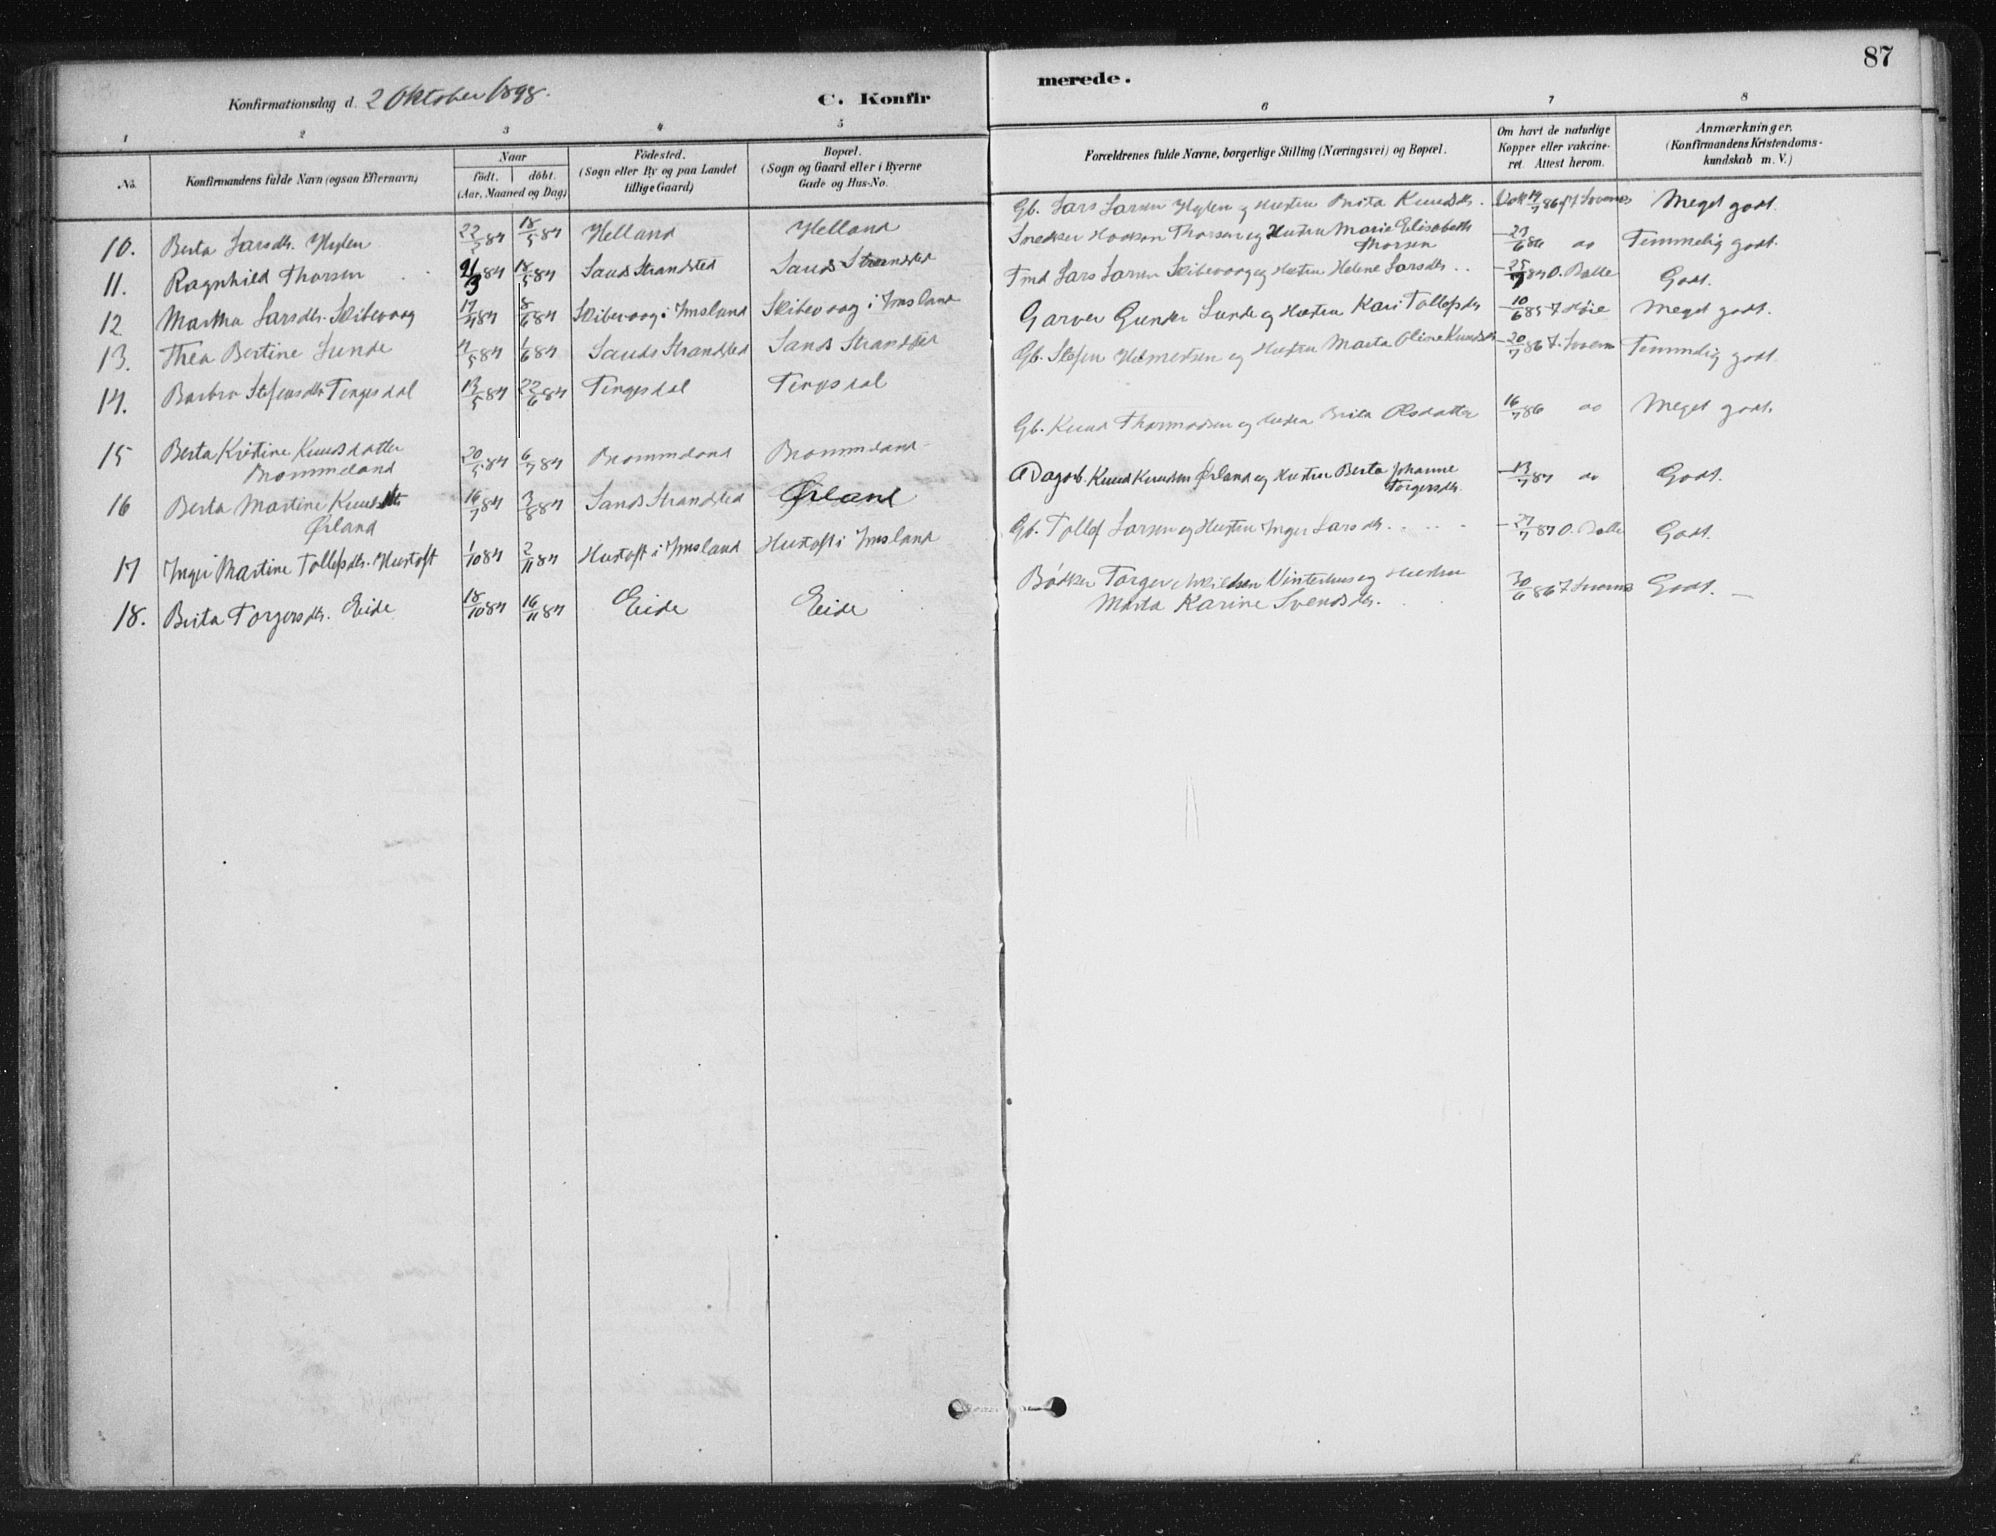 87
Konfirmationsdag d. 2 Oktober 1898.
C. Konfir
merede.
1 2 3 4 5 6 7 8
No.
Konfirmandens fulde Navn (ogsaa Efternavn)
Naar
født. | döbt.
(Aar, Maaned og Dag)
Födested.
(Sogn eller By og paa Landet
tillige Gaard)
Bopæl.
(Sogn og Gaard eller i Byerne
Gade og Hus-No.
Forældrenes fulde Navne, borgerlige Stilling (Næringsvei) og Bopæl.
Om havt de naturlige
Kopper eller vakcine-
ret. Attest herom.
Anmærkninger.
(Konfirmandens Kristendoms-
kundskab m. V.)
10. Berta Larsdtr. Hylen 22/5 84 18/5 84 Helland Helland Gb. Lars Larsen Hylen og Hustru Brita Knudsdtr. Meget godt.
11. Ragnhild Thorsen 84 84 Sands Strandsted Sands Strandsted Snedker Haakon Thorsen og Hustru Marie Elisabeth
Thorsen 86 do Temmelig godt.
12 Martha Larsdtr. Skibevaag 17/4 84 8/6 84 Skibevaag i Imsland Skibevaag i Imsland Fmd Lars Larsen Skibevaag og Hustru Helene Larsdtr. 25/7 87 O. Balle Godt.
13. Thea Bertine Lunde 84 1/6 84 Sands Strandsted Sands Strandsted Garver Gunder Lunde og Hustru Kari Tollefsdtr 10/6 85 Høie Meget godt.
14. Barbro Stefensdtr Tengesdal 13/5 84 22/6 84 Tengesdal Tengesdal Gb. Stefen Helmertsen og Hustru Marta Oline Knudsdtr 20/7 86 Temmelig godt.
15 Berta Kristine Knudsdatter
Brommeland 20/5 84 6/7 84 Brommeland Brommeland Gb. Knud Thormodsen og Hustru Brita Olsdatter 16/7 86 do Meget godt.
16 Berta Martine Knudsdtr
Ørland 16/7 84 3/8 84 Sands Strandsted Ørland Dagarb. Knud Knudsen Ørland og Hustru Berta Johanne
Torgersdtr. 13/7 87 do Godt.
17 Inger Martine Tollefsdtr. Hustoft 1/10 84 2/11 84 Hustoft i Imsland Hustoft i Imsland Gb. Tollef Larsen og Hustru Inger Larsdtr. 87 O. Balle Godt.
18. Berta Torgersdtr. Eide 18/10 84 16/11 84 Eide Eide Bødker Torger Vinterhus og Hustru
Marta Karine Svendsdtr. 30/6 86 Godt.